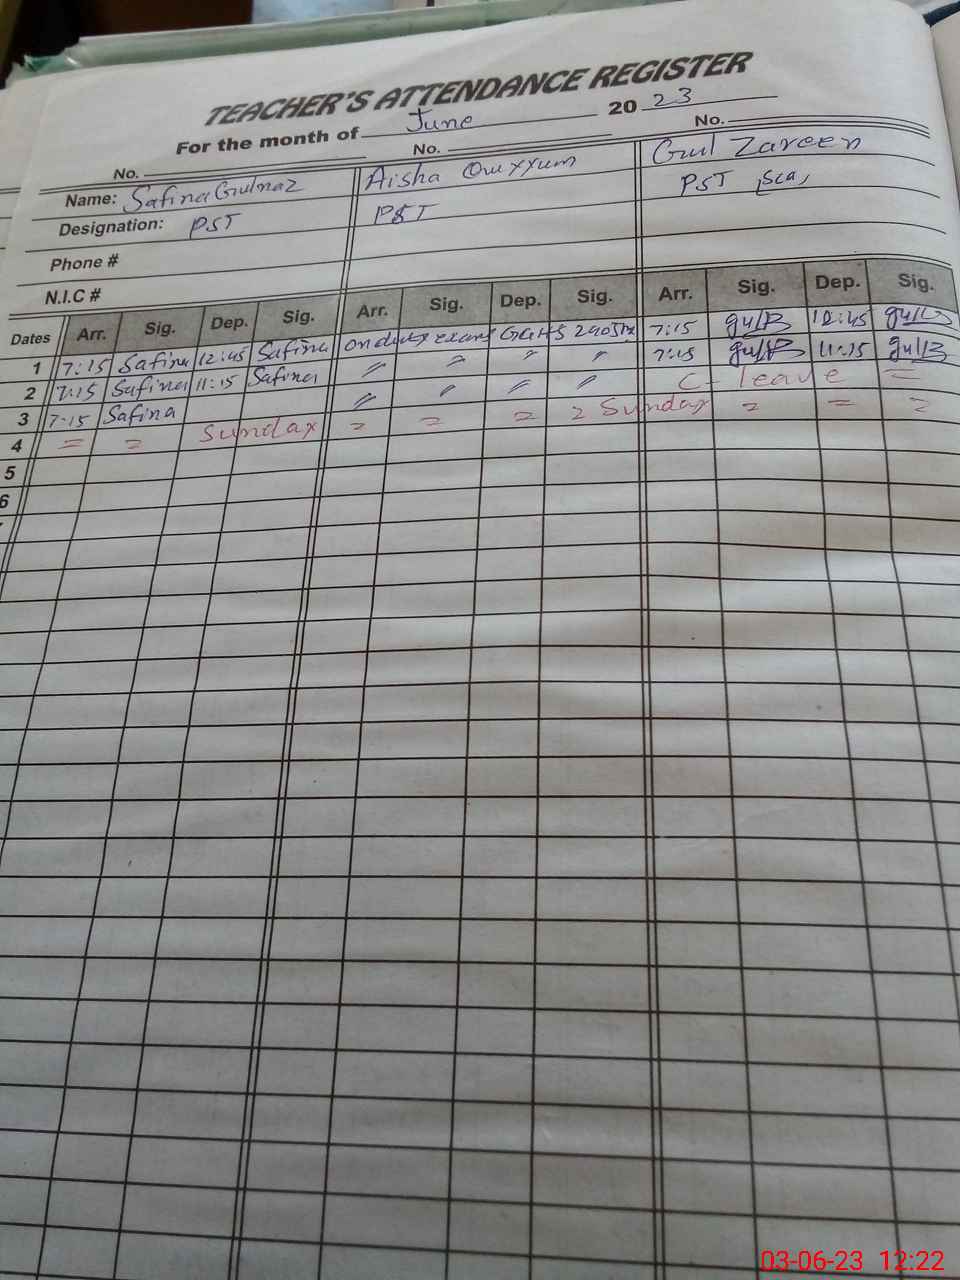 TEACHER'S ATTENDANCE REGISTER
For the month of June 20 23
No. No. No.
Name: Safina Gulnaz Aisha Quxxum Gul Zareen
Designation: PST PST PST Sca,
Phone #
N.I.C #
Dates Arr. Sig. Dep. Sig. Arr. Sig. Dep. Sig. Arr. Sig. Dep. Sig.
1 7:15 Safina 12:45 Safina on dutx exam GGHS 7:15 gulB 12:45 gulB
2 7:15 Safina 11:15 Safina " " " " 7:15 gulB 11:15 gulB
3 7:15 Safina " " " " C- leave =
4 = = Sundax = = = = Sundax = = =
5
6
03-06-23 12:22